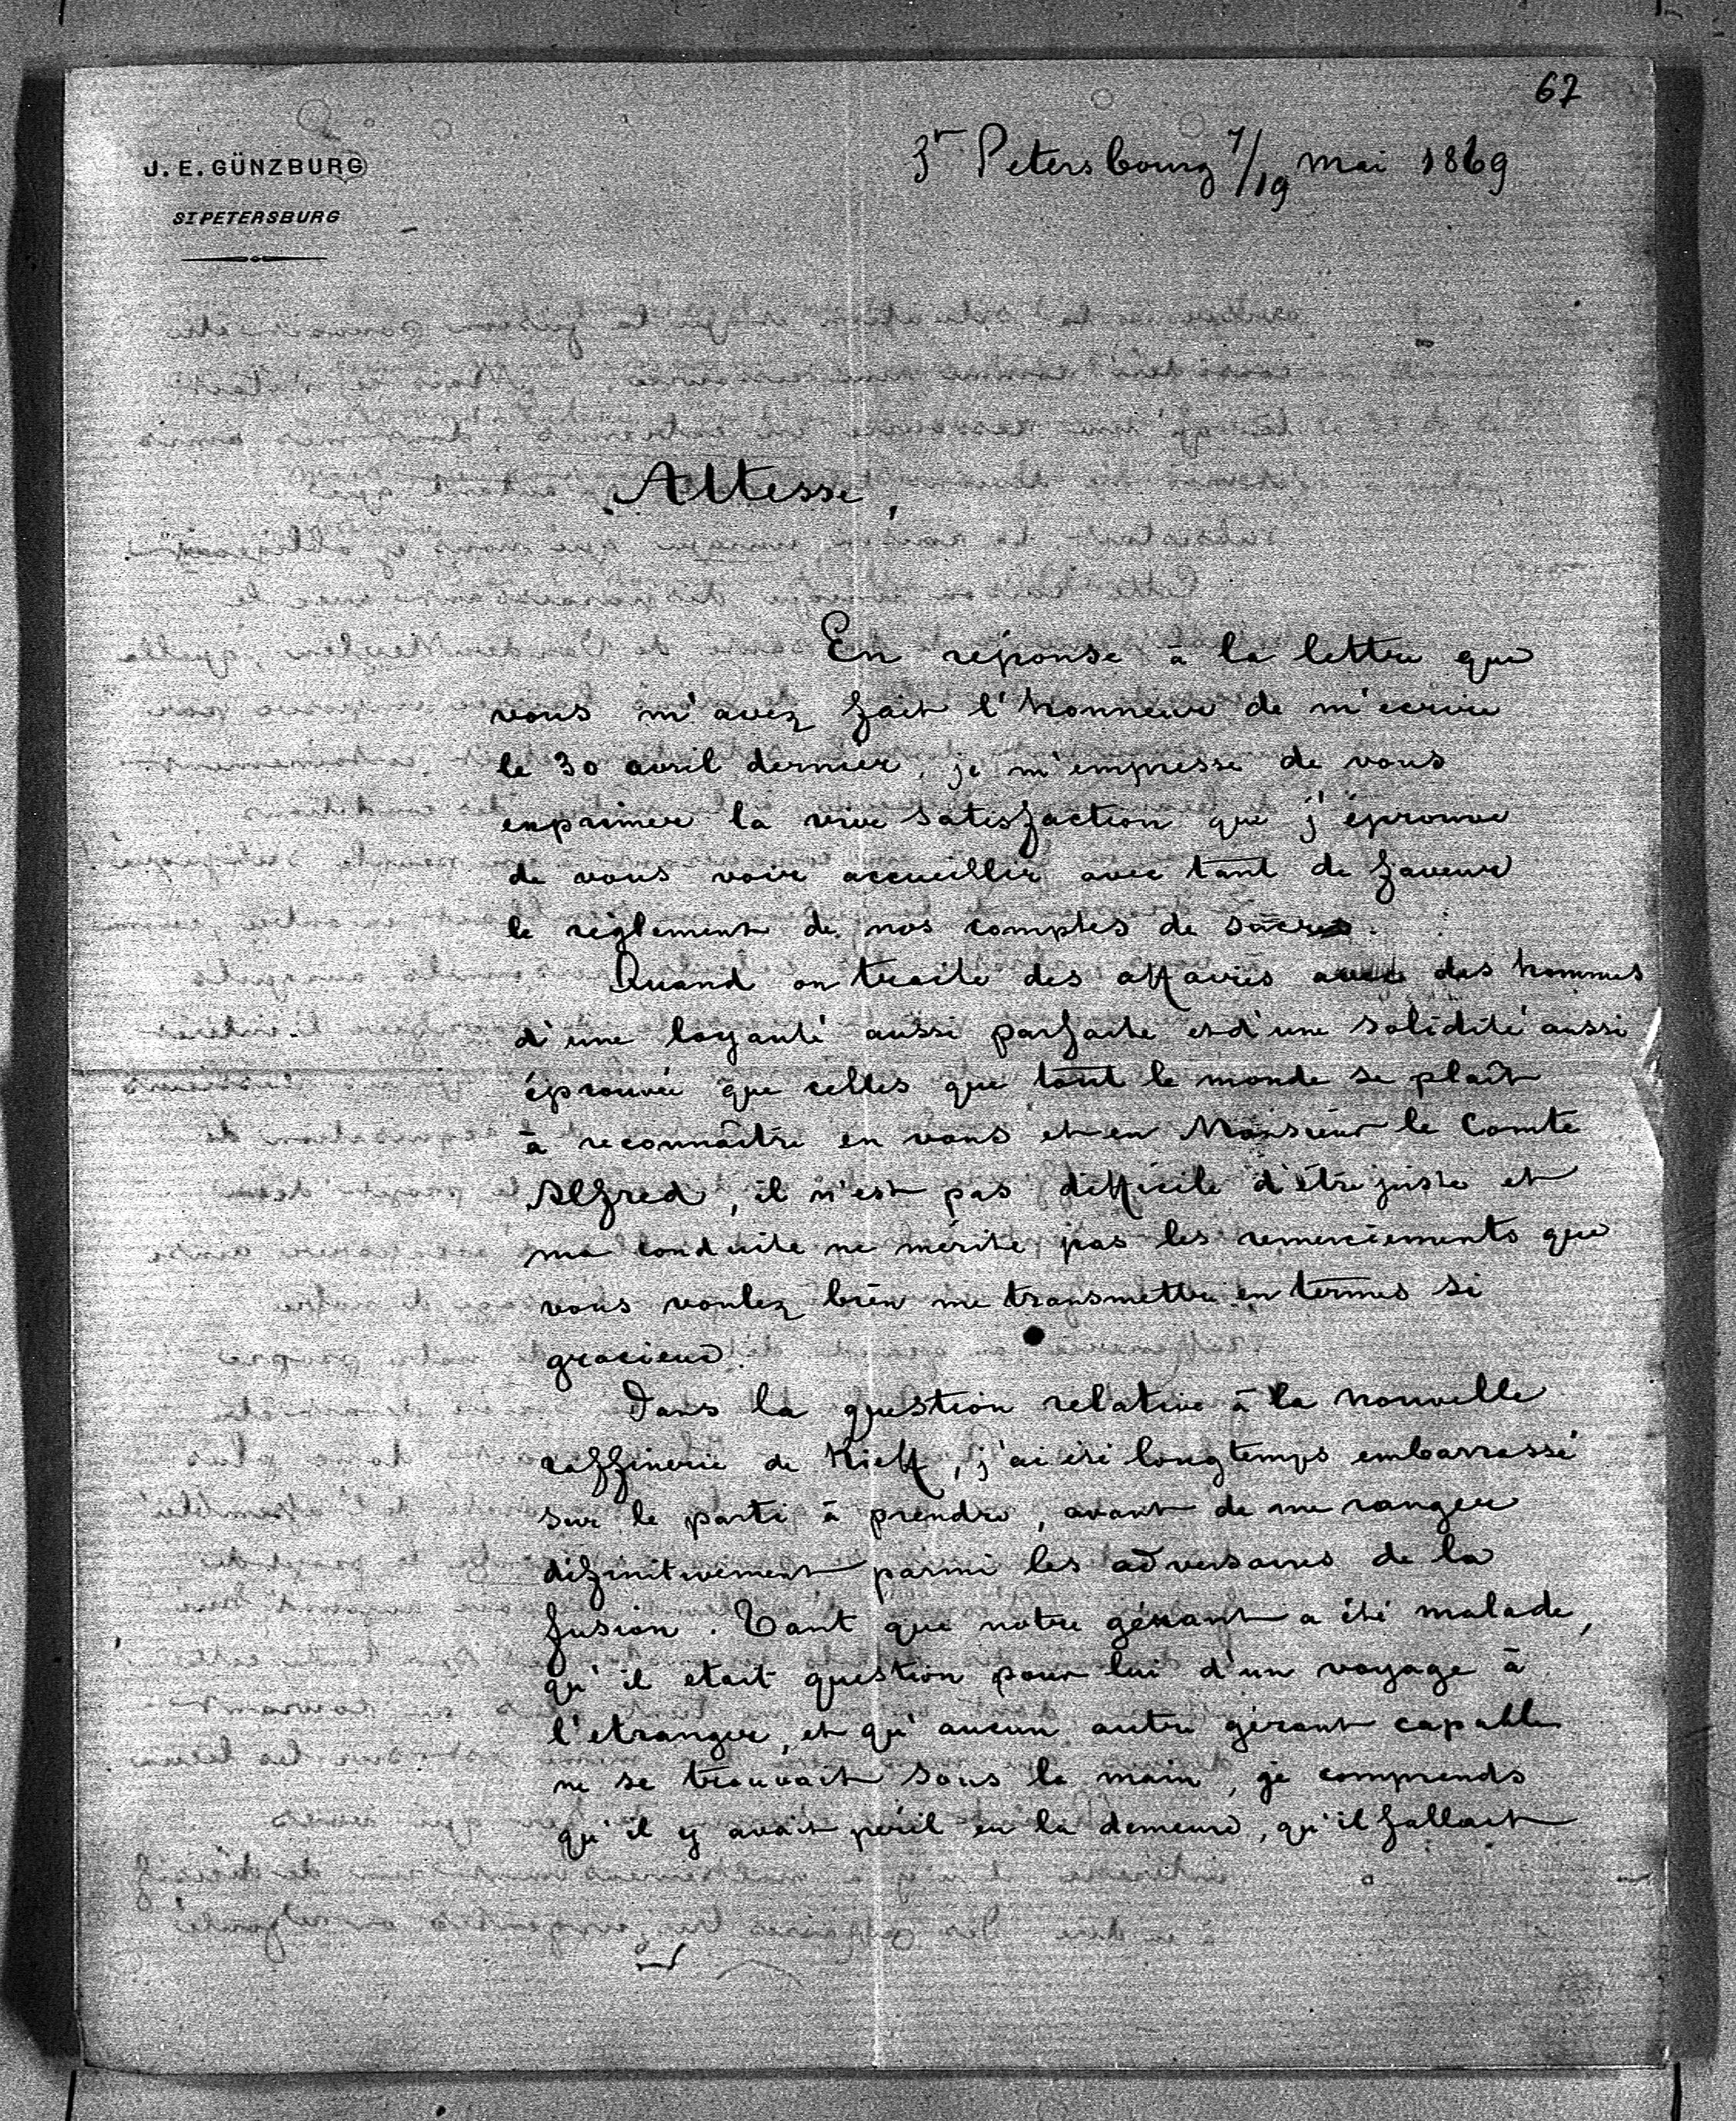 67
J. E. GÜNZBURG
ST PETERSBURG
St Petersbourg 7/19 mai 1869
Altesse,
En réponse à la lettre que
vous m'avez fait l'honneur de m'ecrire
le 30 avril dernier, je m'empresse de vous
exprimer la vive satisfaction que j'éprouve
de vous voir accueillir avec tant de faveur
le règlement de nos comptes de sucres.
Quand on traite des affaires avec des hommes
d'une loyauté aussi parfaite et d'une solidité aussi
éprouvée que celles que tout le monde se plaît
à reconnaître en vous et en Monsieur le Comte
Alfred, il n'est pas difficile d'être juste et
ma conduite ne mérite pas les remerciements que
vous voulez bien me transmettre en termes si
gracieux.
Dans la question relative à la nouvelle
raffinerie de Kieff, j'ai été longtemps embarrassé
sur le parti à prendre, avant de me ranger
définitivement parmi les adversaires de la
fusion. Tant que notre gérant a été malade,
qu'il etait question pour lui d'un voyage à
l'etranger, et qu'aucun autre gérant capable
ne se trouvait sous la main, je comprends
qu'il y avait péril en la demeure, qu'il fallait